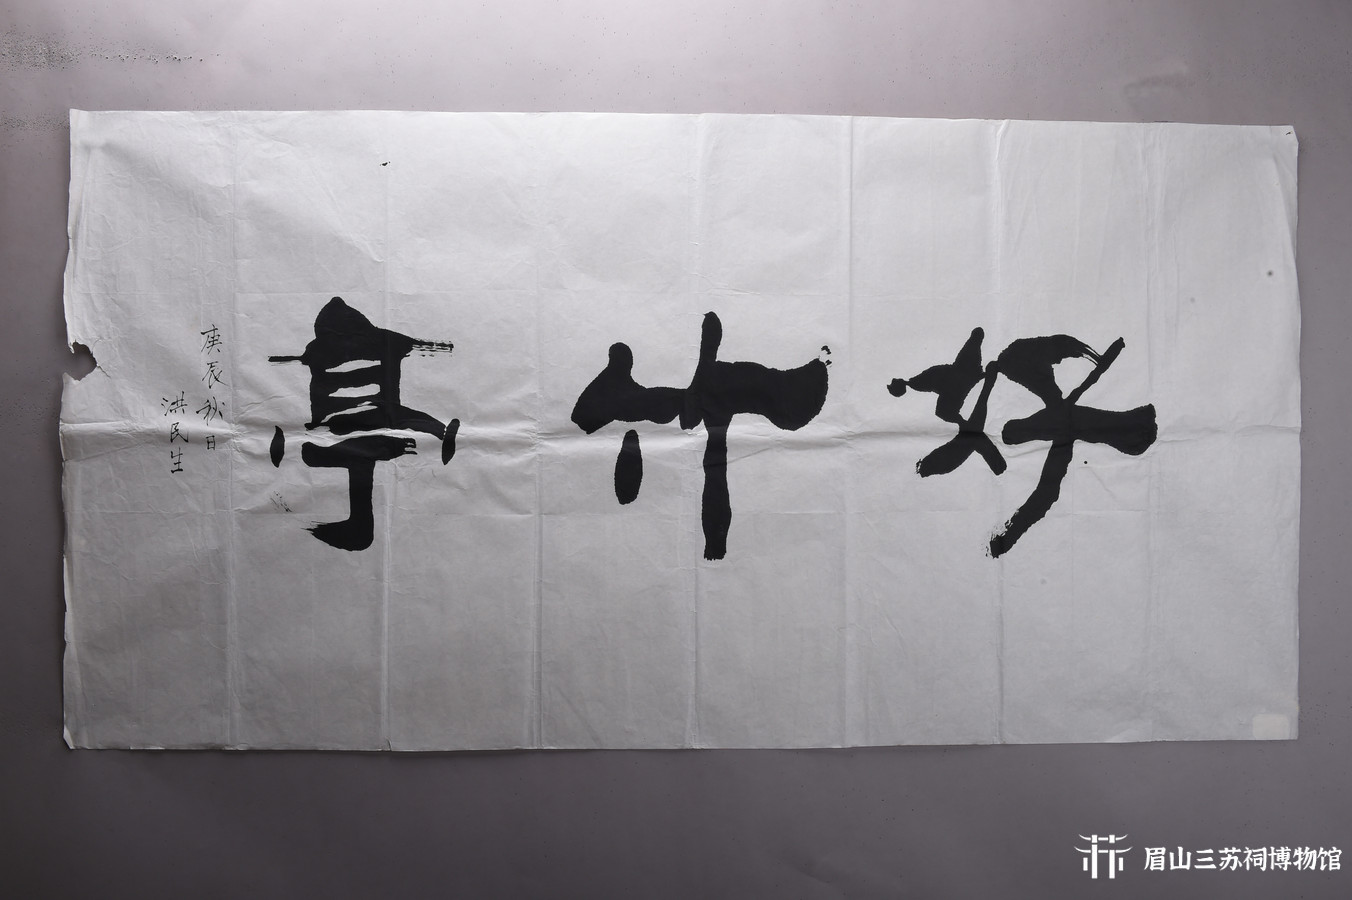 好竹亭
庚辰秋日
洪民生
眉山三苏祠博物馆